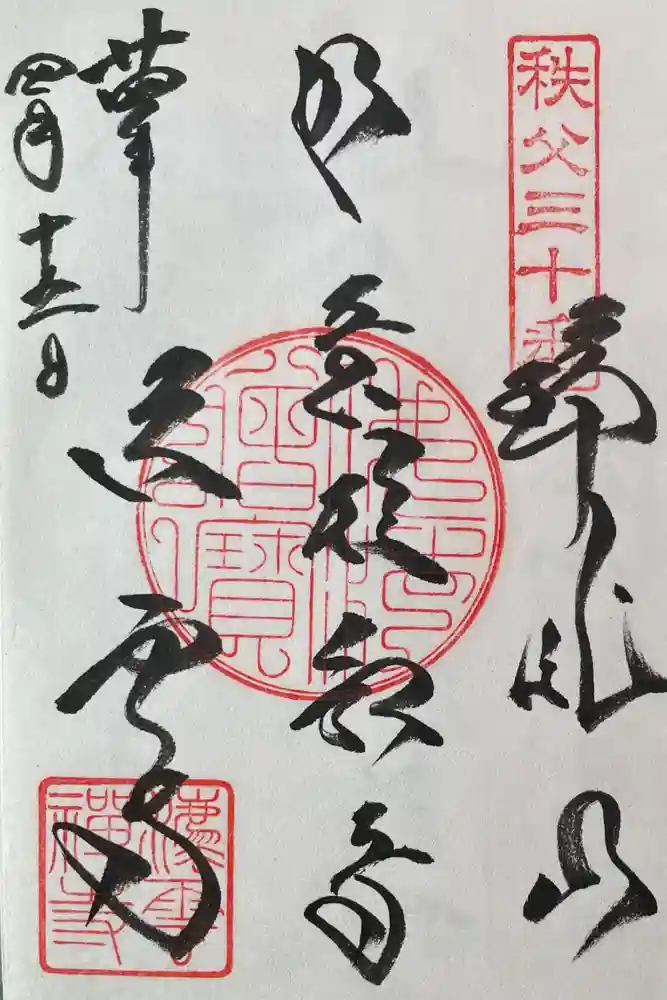 秩父三十番
瑞龍山
如意輪観音
法雲寺
四月十五日
佛法僧寶
灋雲禪寺